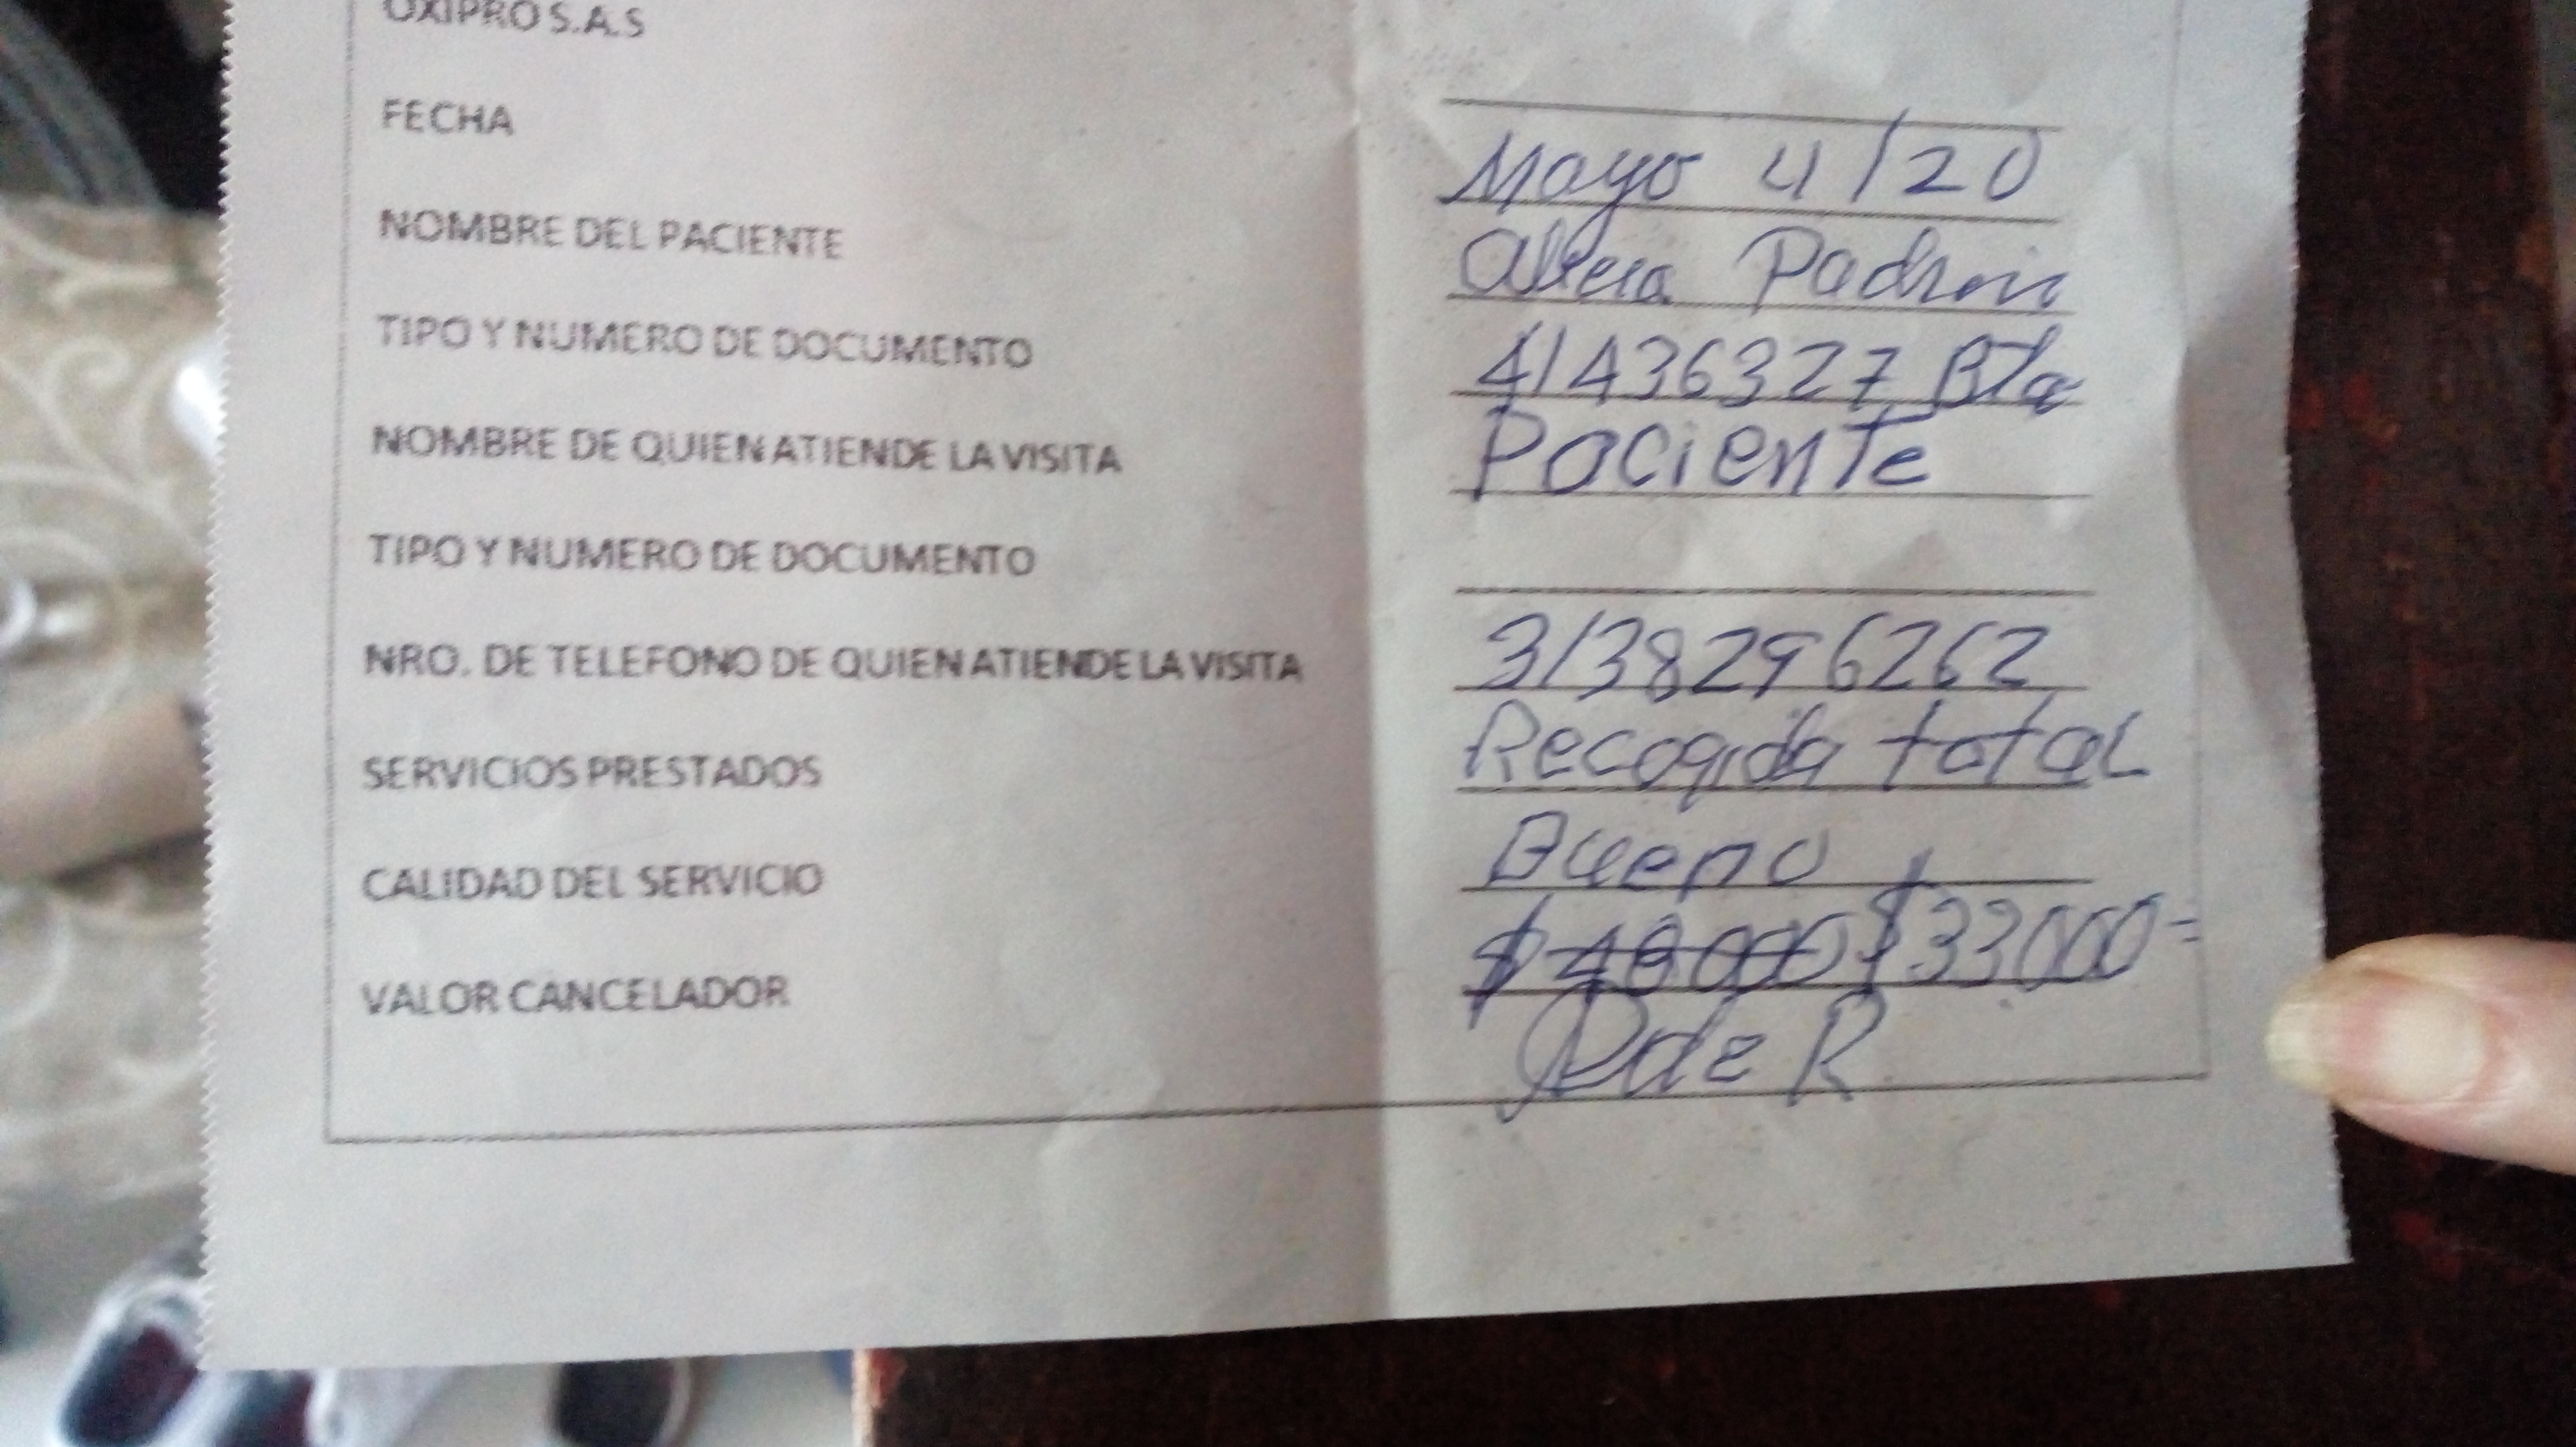 OXIPRO S.A.S
FECHA Mayo 4/20
NOMBRE DEL PACIENTE Padron
TIPO Y NUMERO DE DOCUMENTO 41436327 Bta
NOMBRE DE QUIEN ATIENDE LA VISITA Paciente
TIPO Y NUMERO DE DOCUMENTO
NRO. DE TELEFONO DE QUIEN ATIENDE LA VISITA 3138296262
SERVICIOS PRESTADOS Recogida total
CALIDAD DEL SERVICIO Bueno
VALOR CANCELADOR $ 48000 $33000=